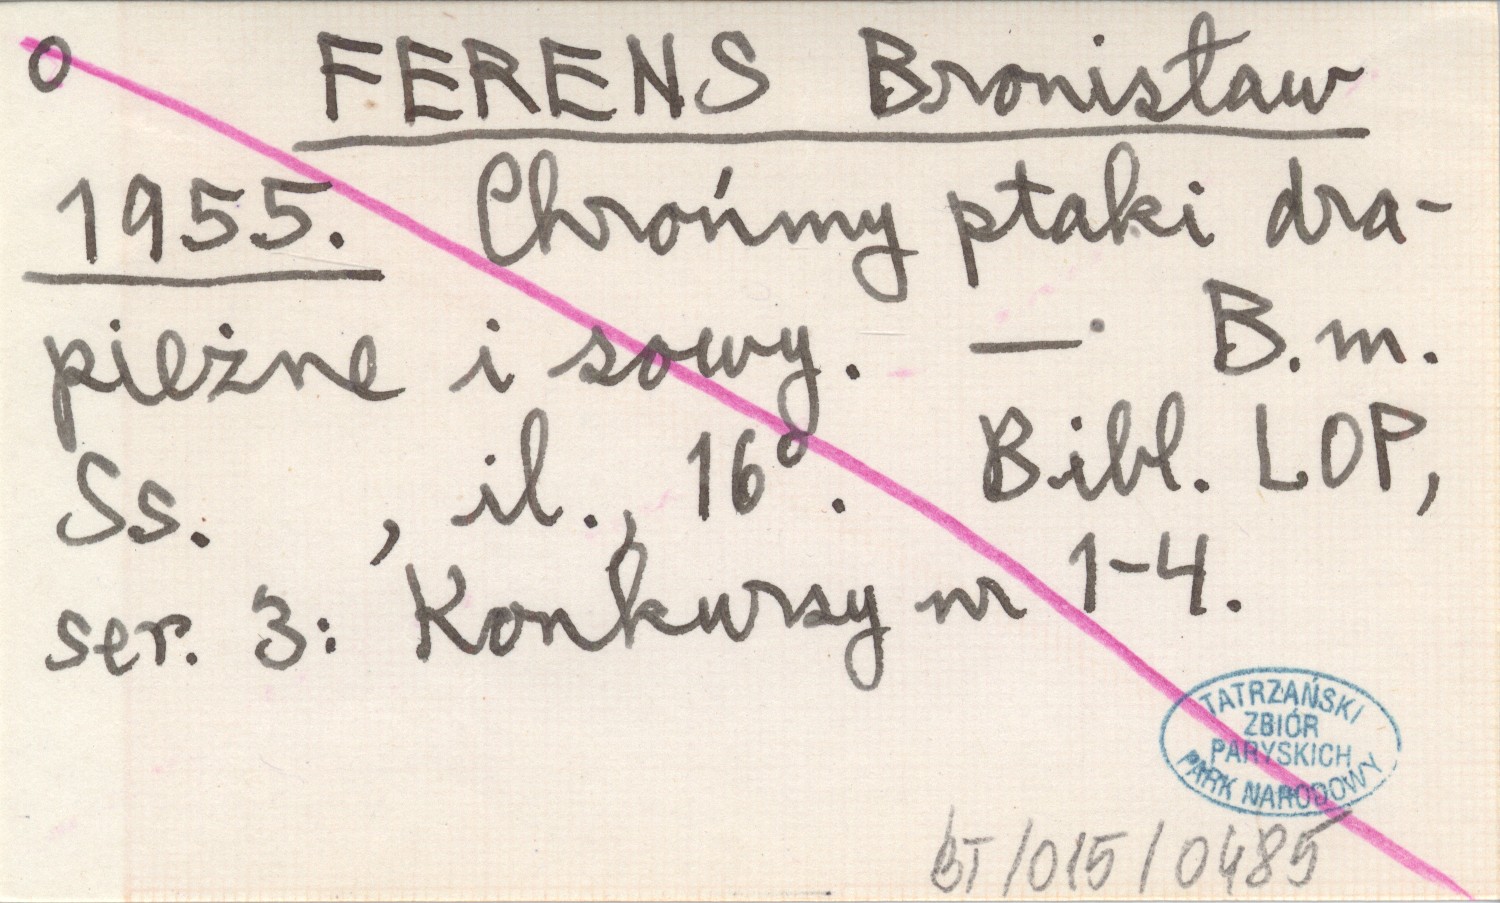 O FERENS Bronisław
1955. Chrońmy ptaki dra-
pieżne i sowy. — B.m.
Ss. , il., 16°. Bibl. LOP,
ser. 3: Konkursy nr 1-4.
TATRZAŃSKI
ZBIÓR
PARYSKICH
PARK NARODOWY
BT/015/0485